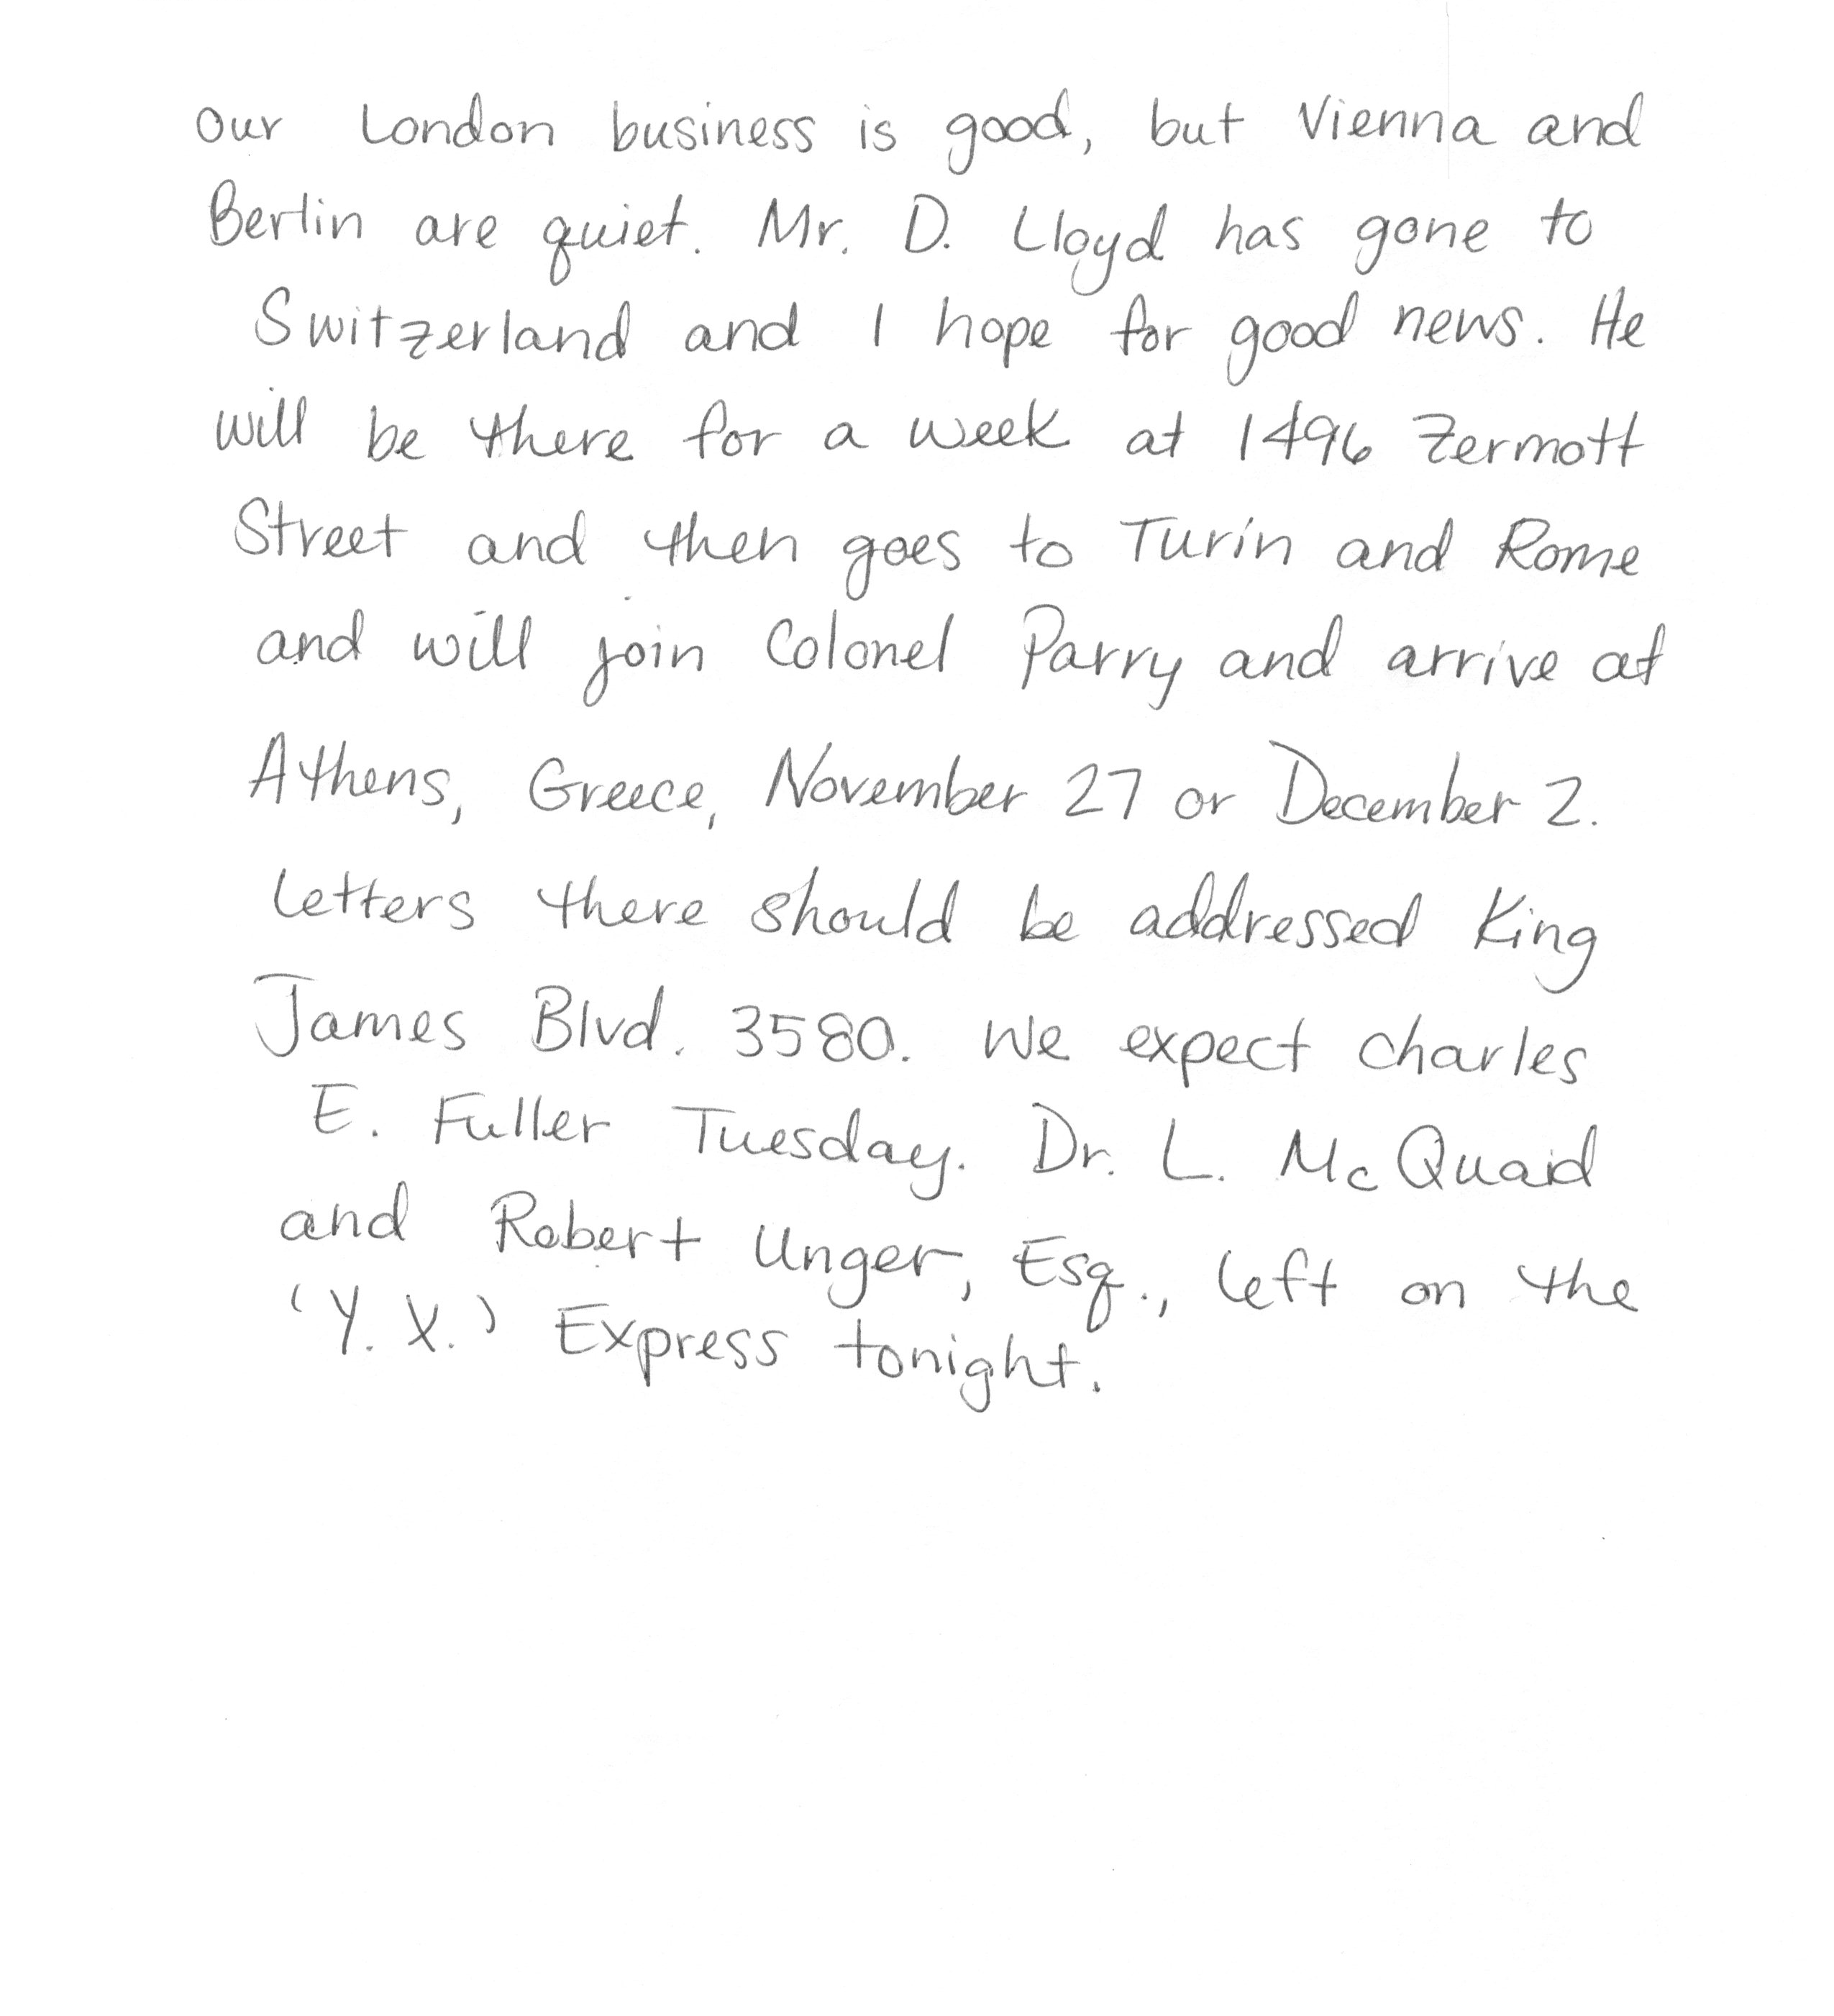 Our London business is good, but Vienna and
Berlin are quiet. Mr. D. Lloyd has gone to
Switzerland and I hope for good news. He
will be there for a week at 1496 Zermott
Street and then goes to Turin and Rome
and will join Colonel Parry and arrive at
Athens, Greece, November 27 or December 2.
Letters there should be addressed King
James Blvd. 3580. We expect Charles
E. Fuller Tuesday. Dr. L. McQuaid
and Robert Unger, Esq., left on the
'Y. X.' Express tonight.